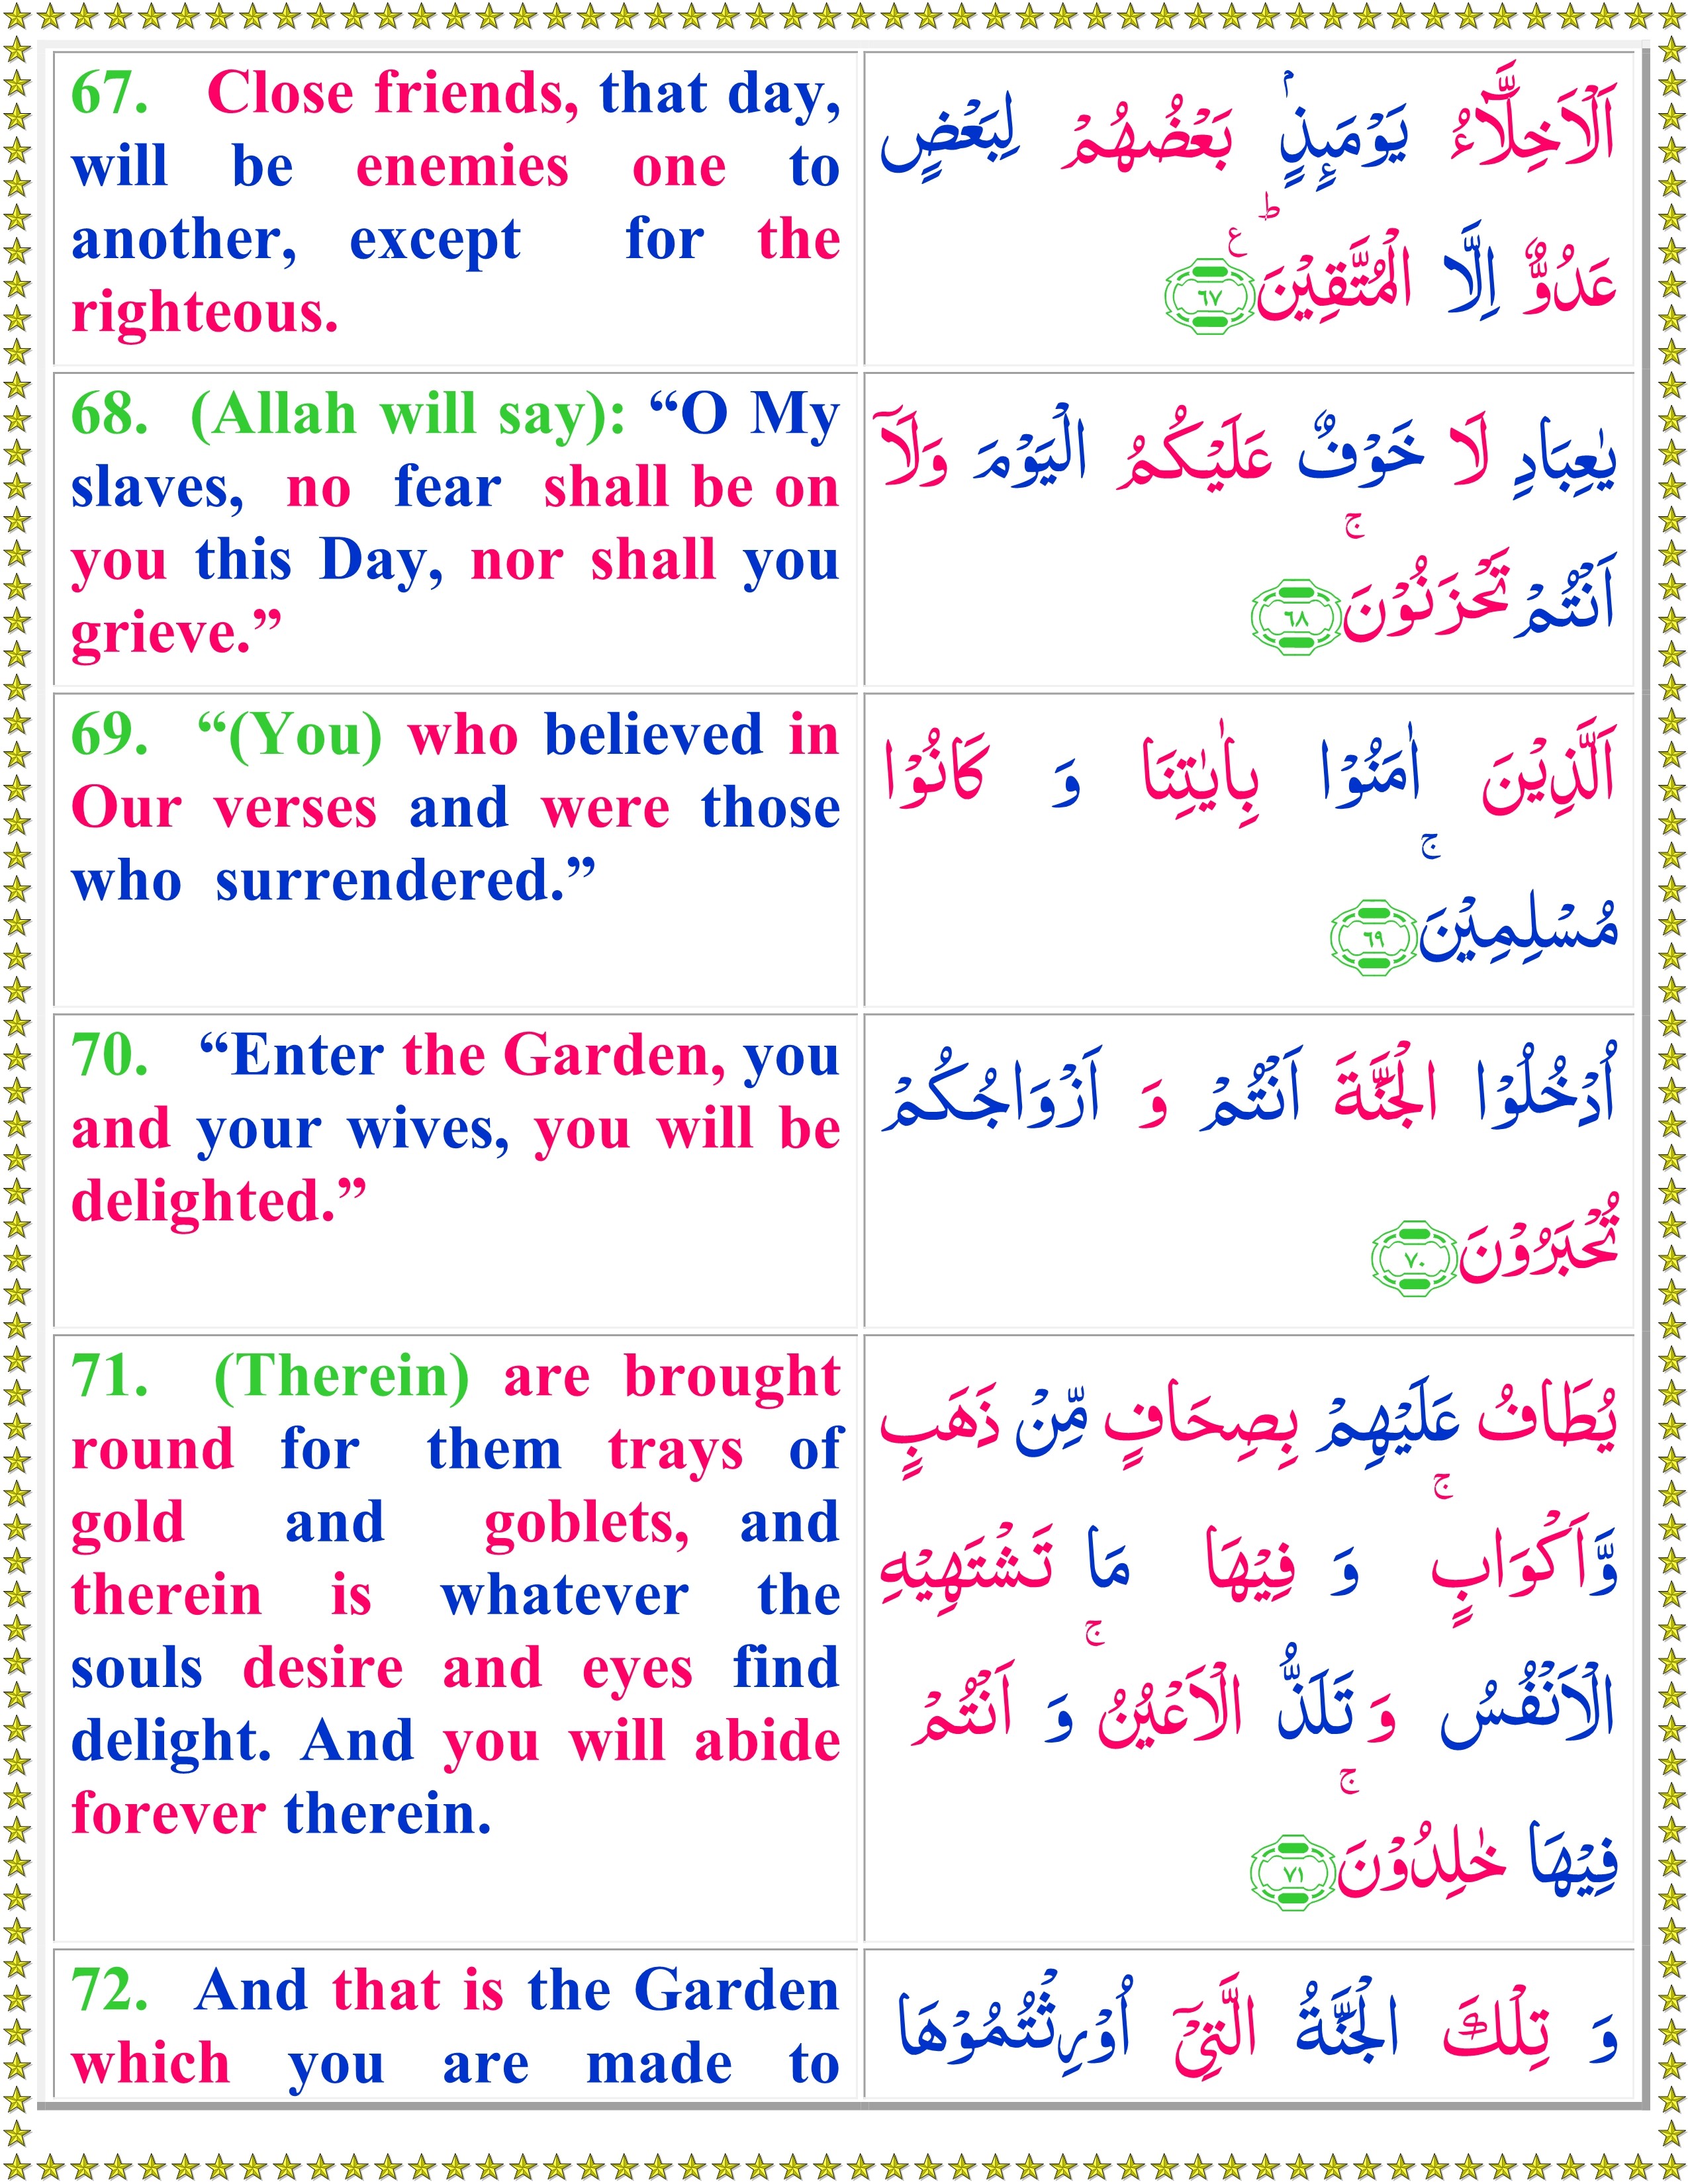 67. Close friends, that day,
will be enemies one to
another, except for the
righteous.
اَلْاَخِلَّآءُ يَوْمَىِٕذٍۭ بَعْضُهُمْ لِبَعْضٍ
عَدُوٌّ اِلَّا الْمُتَّقِيْنَ ؕ ع ٦٧
68. (Allah will say): “O My
slaves, no fear shall be on
you this Day, nor shall you
grieve.”
يٰعِبَادِ لَا خَوْفٌ عَلَيْكُمُ الْيَوْمَ وَلَاۤ
اَنْتُمْ تَحْزَنُوْنَ ۚ ٦٨
69. “(You) who believed in
Our verses and were those
who surrendered.”
اَلَّذِيْنَ اٰمَنُوْا بِاٰيٰتِنَا وَ كَانُوْا
مُسْلِمِيْنَ ۚ ٦٩
70. “Enter the Garden, you
and your wives, you will be
delighted.”
اُدْخُلُوْا الْجَنَّةَ اَنْتُمْ وَ اَزْوَاجُكُمْ
تُحْبَرُوْنَ ٧٠
71. (Therein) are brought
round for them trays of
gold and goblets, and
therein is whatever the
souls desire and eyes find
delight. And you will abide
forever therein.
يُطَافُ عَلَيْهِمْ بِصِحَافٍ مِّنْ ذَهَبٍ
وَّاَكْوَابٍ ۚ وَ فِيْهَا مَا تَشْتَهِيْهِ
الْاَنْفُسُ وَ تَلَذُّ الْاَعْيُنُ ۚ وَ اَنْتُمْ
فِيْهَا خٰلِدُوْنَ ۚ ٧١
72. And that is the Garden
which you are made to
وَ تِلْكَ الْجَنَّةُ الَّتِيْۤ اُوْرِثْتُمُوْهَا